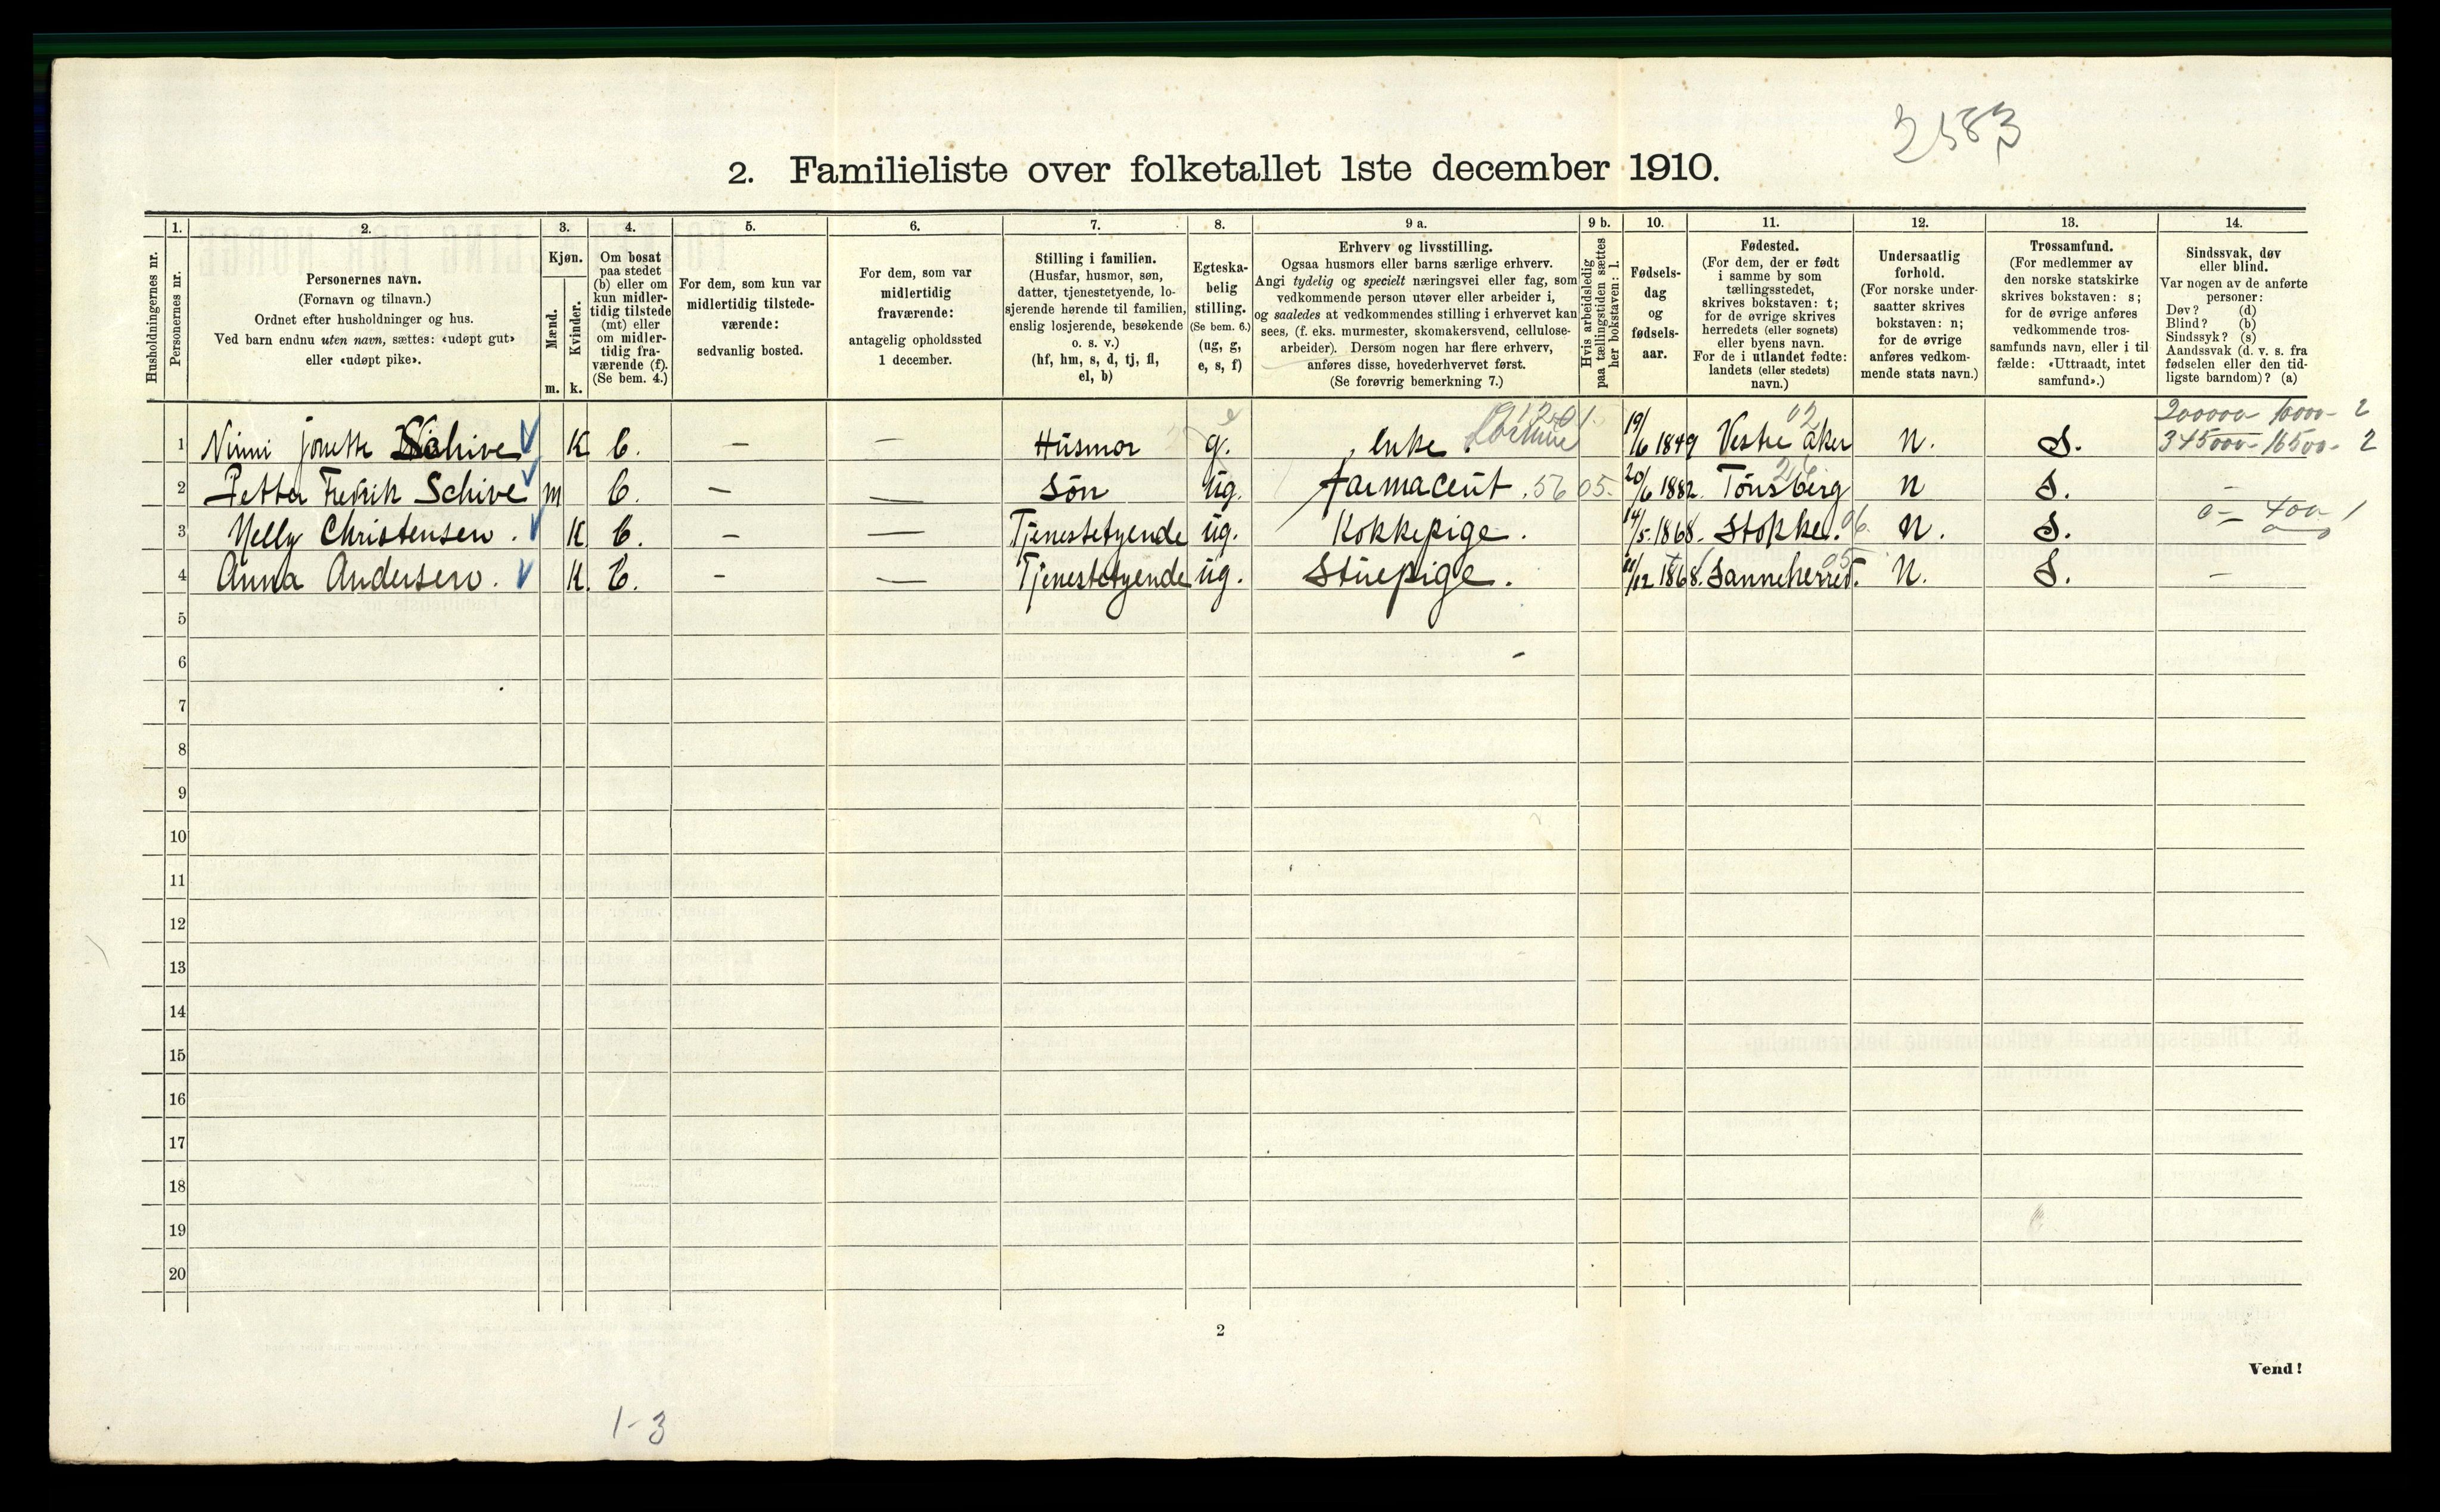 2583
2. Familieliste over folketallet 1ste december 1910.
1. 2. 3. 4. 5. 6. 7. 8. 9 a. 9 b. 10. 11. 12. 13. 14.
Husholdningernes nr.
Personernes nr.
Personernes navn.
(Fornavn og tilnavn.)
Ordnet efter husholdninger og hus.
Ved barn endnu uten navn, sættes: «udøpt gut»
eller «udøpt pike».
Kjøn.
Mænd.
m.
Kvinder.
k.
Om bosat
paa stedet
(b) eller om
kun midler-
tidig tilstede
(mt) eller
om midler-
tidig fra-
værende (f).
(Se bem. 4.)
For dem, som kun var
midlertidig tilstede-
værende:
sedvanlig bosted.
For dem, som var
midlertidig
fraværende:
antagelig opholdssted
1 december.
Stilling i familien.
(Husfar, husmor, søn,
datter, tjenestetyende, lo-
sjerende hørende til familien,
enslig losjerende, besøkende
o. s. v.)
(hf, hm, s, d, tj, fl,
el, b)
Egteska-
belig
stilling.
(Se bem. 6.)
(ug, g,
e, s, f)
Erhverv og livsstilling.
Ogsaa husmors eller barns særlige erhverv.
Angi tydelig og specielt næringsvei eller fag, som
vedkommende person utøver eller arbeider i,
og saaledes at vedkommendes stilling i erhvervet kan
sees, (f. eks. murmester, skomakersvend, cellulose-
arbeider). Dersom nogen har flere erhverv,
anføres disse, hovederhvervet først.
(Se forøvrig bemerkning 7.)
Hvis arbeidsledig
paa tællingstiden sættes
her bokstaven: l.
Fødsels-
dag
og
fødsels-
aar.
Fødested.
(For dem, der er født
i samme by som
tællingsstedet,
skrives bokstaven: t;
for de øvrige skrives
herredets (eller sognets)
eller byens navn.
For de i utlandet fødte:
landets (eller stedets)
navn.)
Undersaatlig
forhold.
(For norske under-
saatter skrives
bokstaven: n;
for de øvrige
anføres vedkom-
mende stats navn.)
Trossamfund.
(For medlemmer av
den norske statskirke
skrives bokstaven: s;
for de øvrige anføres
vedkommende tros-
samfunds navn, eller i til-
fælde: «Uttraadt, intet
samfund».)
Sindssvak, døv
eller blind.
Var nogen av de anførte
personer:
Døv? (d)
Blind? (b)
Sindssyk? (s)
Aandssvak (d. v. s. fra
fødselen eller den tid-
ligste barndom)? (a)
200000 10000- 2
1 Ninni Jonette Schive K b. — — Husmor g. enke 19/6 1849 Vestre Aker 02 n. S. 345000- 16500- 2
2 Petter Fredrik Schive m b. — — Søn ug. farmaceut. 5605. 20/6 1882. Tønsberg n S. —
3 Nelly Christensen. K b. — — Tjenestetyende ug. Kokkepige. 14/5 1868. Stokke. 06. n. S. 0- 400 1
4 Anna Andersen. K. b. - — Tjenestetyende ug. Stuepige. 1868. Sanneherred. 05 n. S. —
5
6
7
8
9
10
11
12
13
14
15
16
17
18
19
20
2
Vend!
1-3